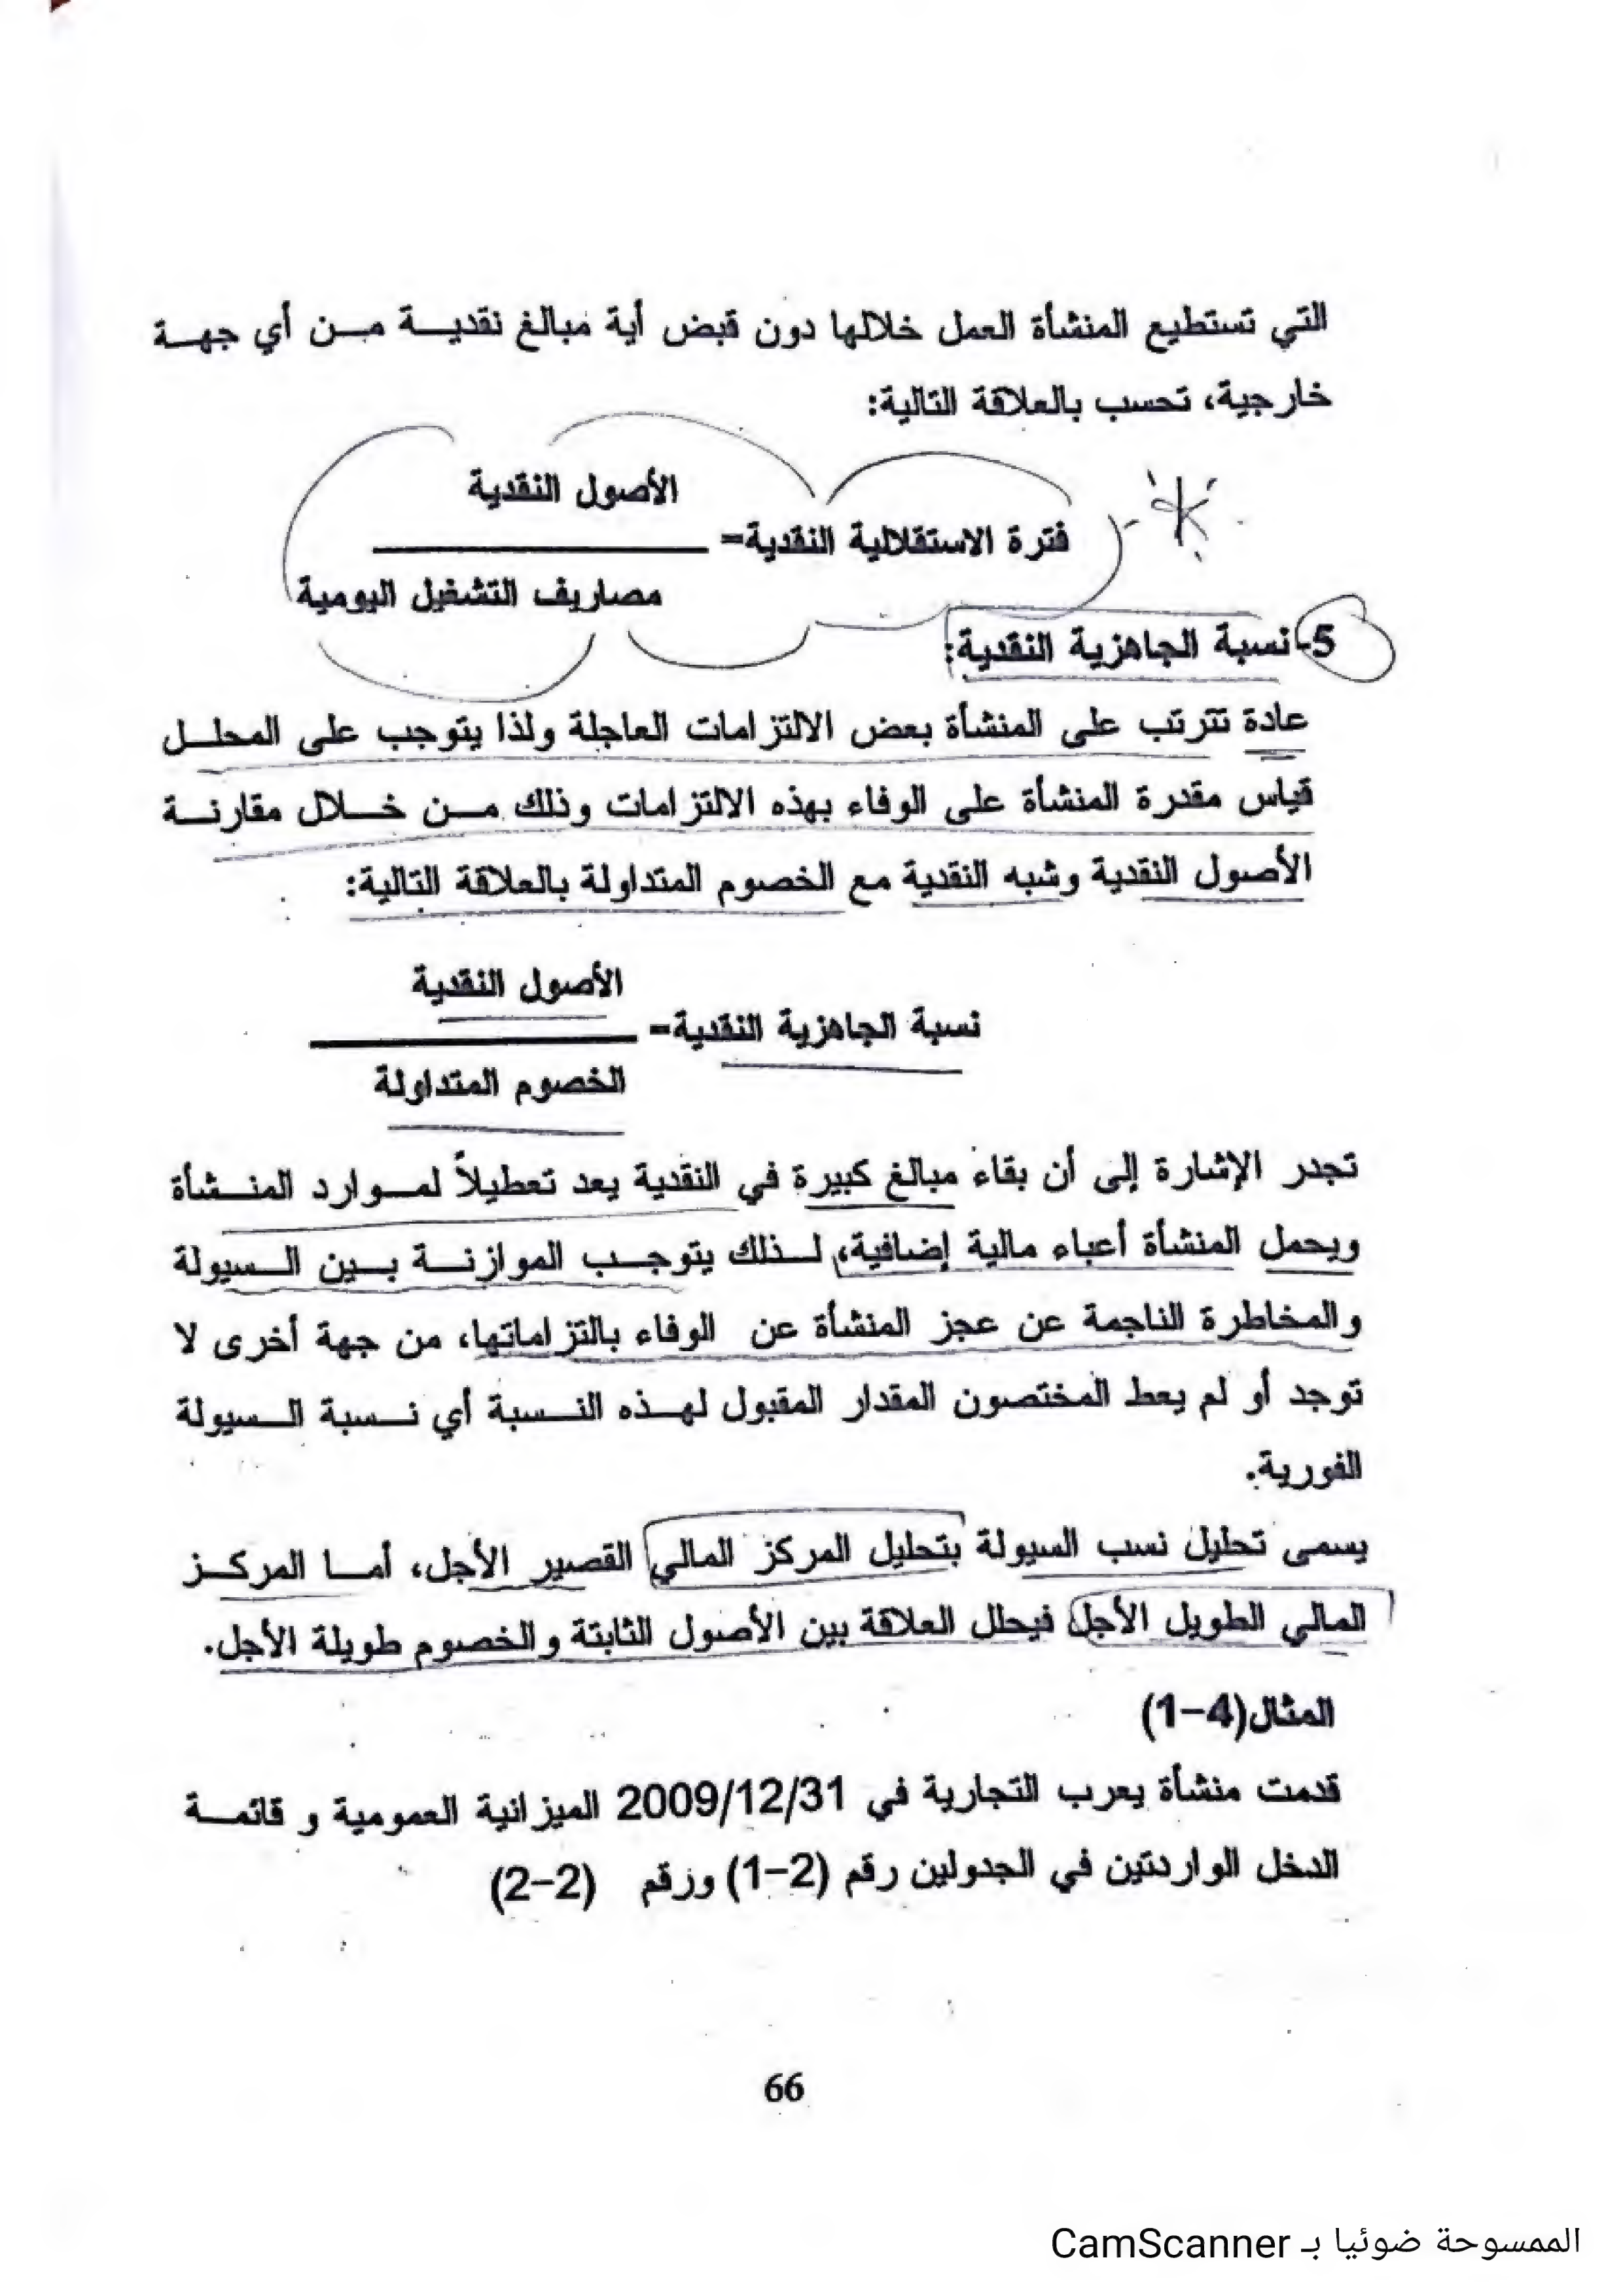 التي تستطيع المنشأة العمل خلالها دون قبض أية مبالغ نقدية من أي جهة
خارجية، تحسب بالعلاقة التالية:
الأصول النقدية
فترة الاستقلالية النقدية=
مصاريف التشغيل اليومية
5-نسبة الجاهزية النقدية:
عادة تترتب على المنشأة بعض الالتزامات العاجلة ولذا يتوجب على المحلل
قياس مقدرة المنشأة على الوفاء بهذه الالتزامات وذلك من خلال مقارنة
الأصول النقدية وشبه النقدية مع الخصوم المتداولة بالعلاقة التالية:
الأصول النقدية
نسبة الجاهزية النقدية=
الخصوم المتداولة
تجدر الإشارة إلى أن بقاء مبالغ كبيرة في النقدية يعد تعطيلاً لموارد المنشأة
ويحمل المنشأة أعباء مالية إضافية، لذلك يتوجب الموازنة بين السيولة
والمخاطرة الناجمة عن عجز المنشأة عن الوفاء بالتزاماتها، من جهة أخرى لا
توجد أو لم يعط المختصون المقدار المقبول لهذه النسبة أي نسبة السيولة
الفورية.
يسمى تحليل نسب السيولة بتحليل المركز المالي القصير الأجل، أما المركز
المالي الطويل الأجل فيحلل العلاقة بين الأصول الثابتة والخصوم طويلة الأجل.
المثال(4-1)
قدمت منشأة يعرب التجارية في 2009/12/31 الميزانية العمومية و قائمة
الدخل الواردتين في الجدولين رقم (2-1) ورقم (2-2)
66
الممسوحة ضوئيا بـ CamScanner